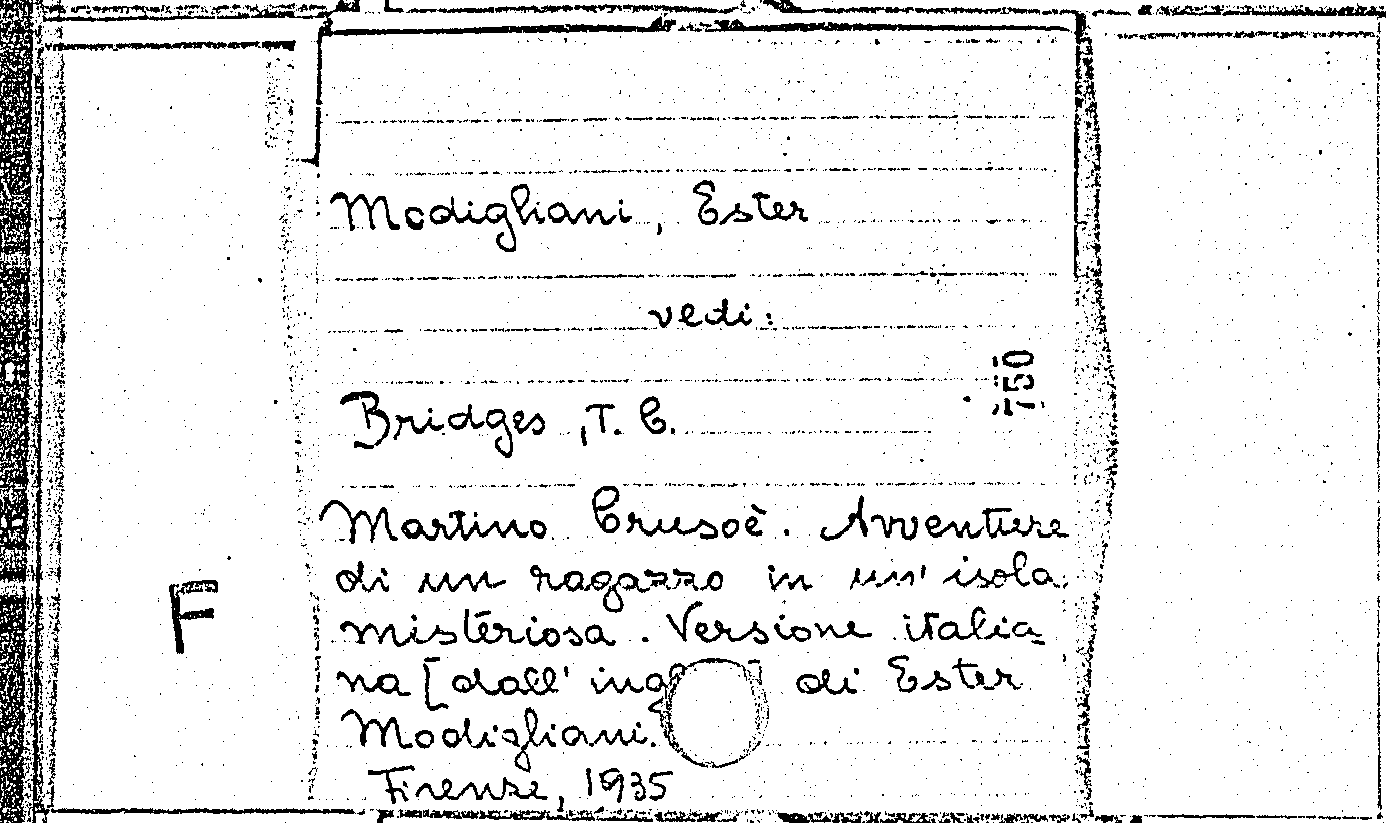 Modigliani, Ester
vedi:
750
Bridges, T. C.
Martino Crusoè. Avventure
di un ragazzo in un' isola
misteriosa. Versione italia=
na [dall' ] di Ester
Modigliani.
Firenze, 1935
F